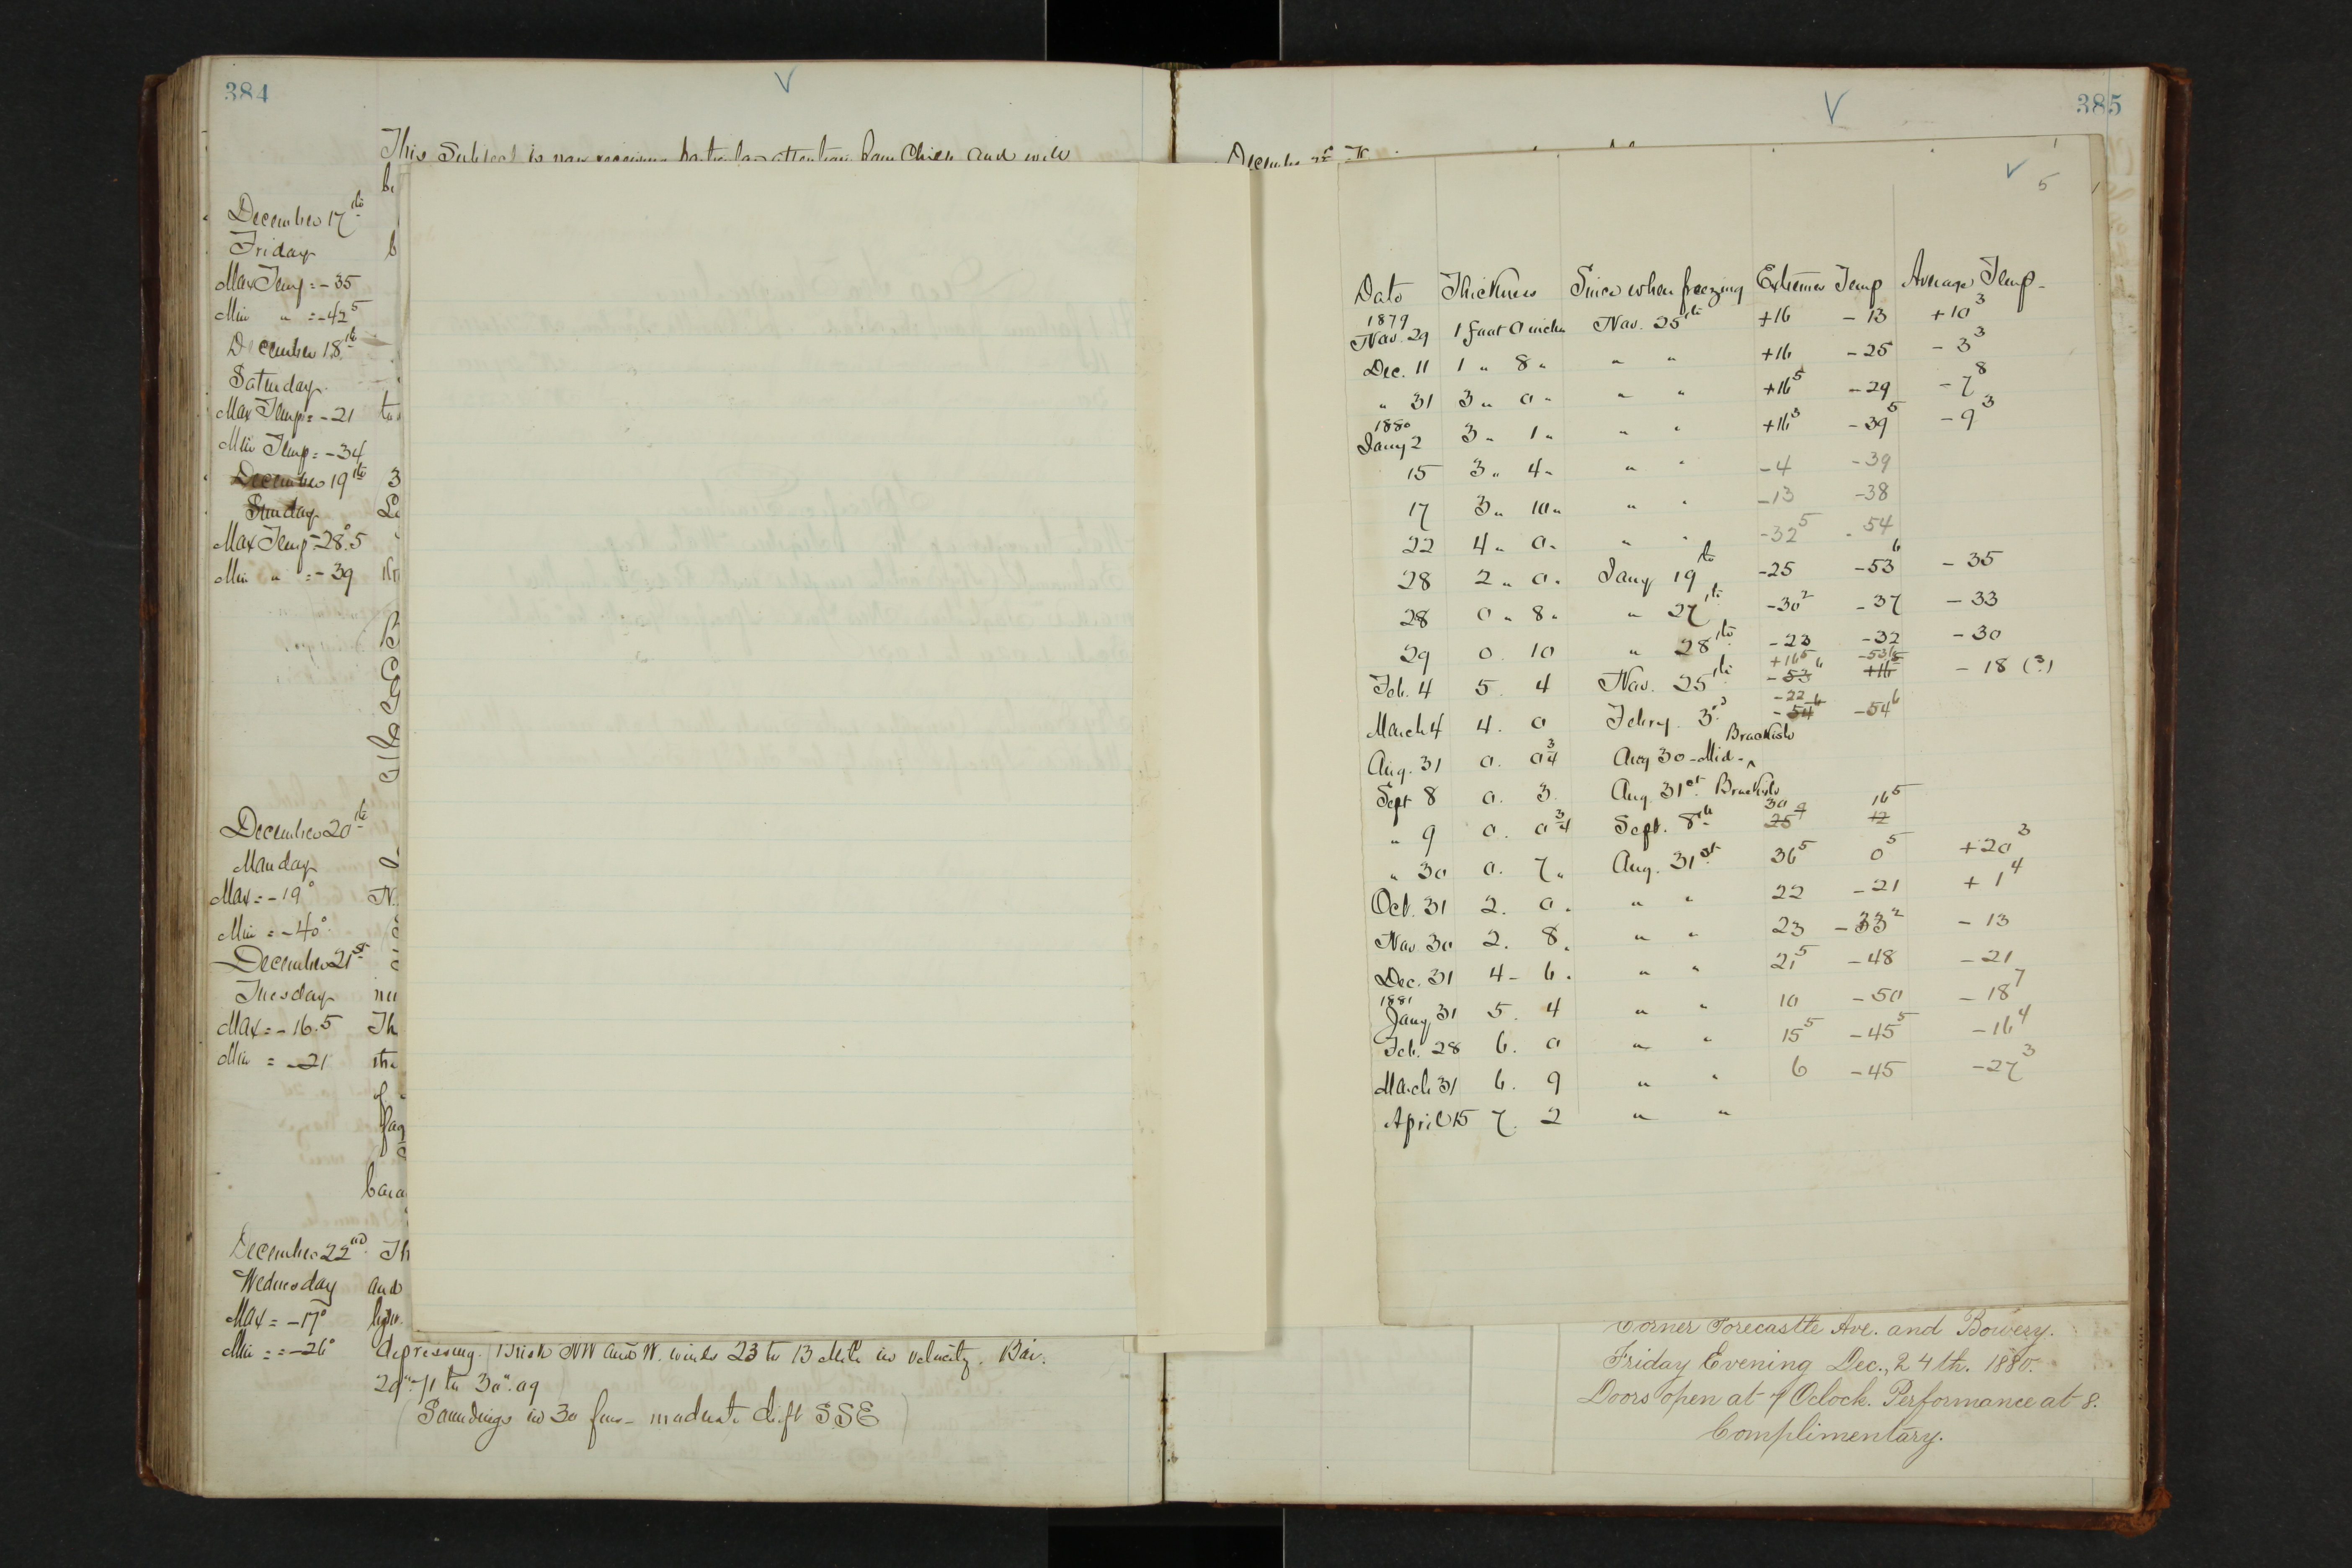 384
V
This subject is now receiving particular attention from Chipp and will
be
December 17th
Friday
Max Temp = -35
Min " = -42⁵
December 18th
Saturday
Max Temp = -21
Min Temp = -34
December 19th
Sunday
Max Temp -28°.5
Min " = -39
December 20th
Monday
Max = -19°
Min = -40°
December 21st
Tuesday
Max = -16.5
Min = -21
December 22nd
Wednesday
Max = -17°
Min = = -26°
and
depressing. Brisk NW and W. winds 23 to 13 mile in velocity. Bar.
29".71 to 30".09
(Soundings in 30 fms - moderate drift SSE)
385
V
December
V 5
Date Thickness Since when freezing Extremes Temp Average Temp
1879
Nov. 29 1 foot 0 inches Nov. 25th +16 -13 +10³
Dec. 11 1 " 8 " " " +16 -25 -3³
" 31 3 " 0 " " " +16⁵ -29 -7⁸
1880
Jany 2 3 " 1 " " " +16³ -39⁵ -9³
15 3 " 4 " " " -4 -39
17 3 " 10 " " " -13 -38
22 4 " 0 " " " -32⁵ -54
28 2 " 0 " Jany 19th -25 -53⁶ -35
28 0 " 8 " " 27th -30² -37 -33
29 0 10 " 28th -23 -32 -30
+16⁵ -53⁶
Feb. 4 5 . 4 Nov. 25th -53⁶ +16⁵ -18 (?)
-22
March 4 4 . 0 Febry. 3rd -54⁶ -54⁶
Brackish
Aug. 31 0 . 0¾ Aug 30 - Mid - ^
Sept 8 0 . 3 Aug. 31st Brackish
30 9 16⁵
" 9 0 . 0¾ Sept. 8th 25⁹ 12
" 30 0 . 7 " Aug. 31st 36⁵ 0⁵ +20³
Oct. 31 2 . 0 " " " 22 -21 +1⁴
Nov. 30 2 . 8 " " " 23 -33² -13
Dec. 31 4 - 6 " " " 21⁵ -48 -21
1881
Jany 31 5 . 4 " " 10 -50 -18⁷
Feb. 28 6 . 0 " " 15⁵ -45⁵ -16⁴
March 31 6 . 9 " " 6 -45 -27³
April 15 7 . 2 " "
Corner Forecastle Ave. and Bowery.
Friday Evening Dec., 24th. 1880.
Doors open at 7 Oclock. Performance at 8.
Complimentary.